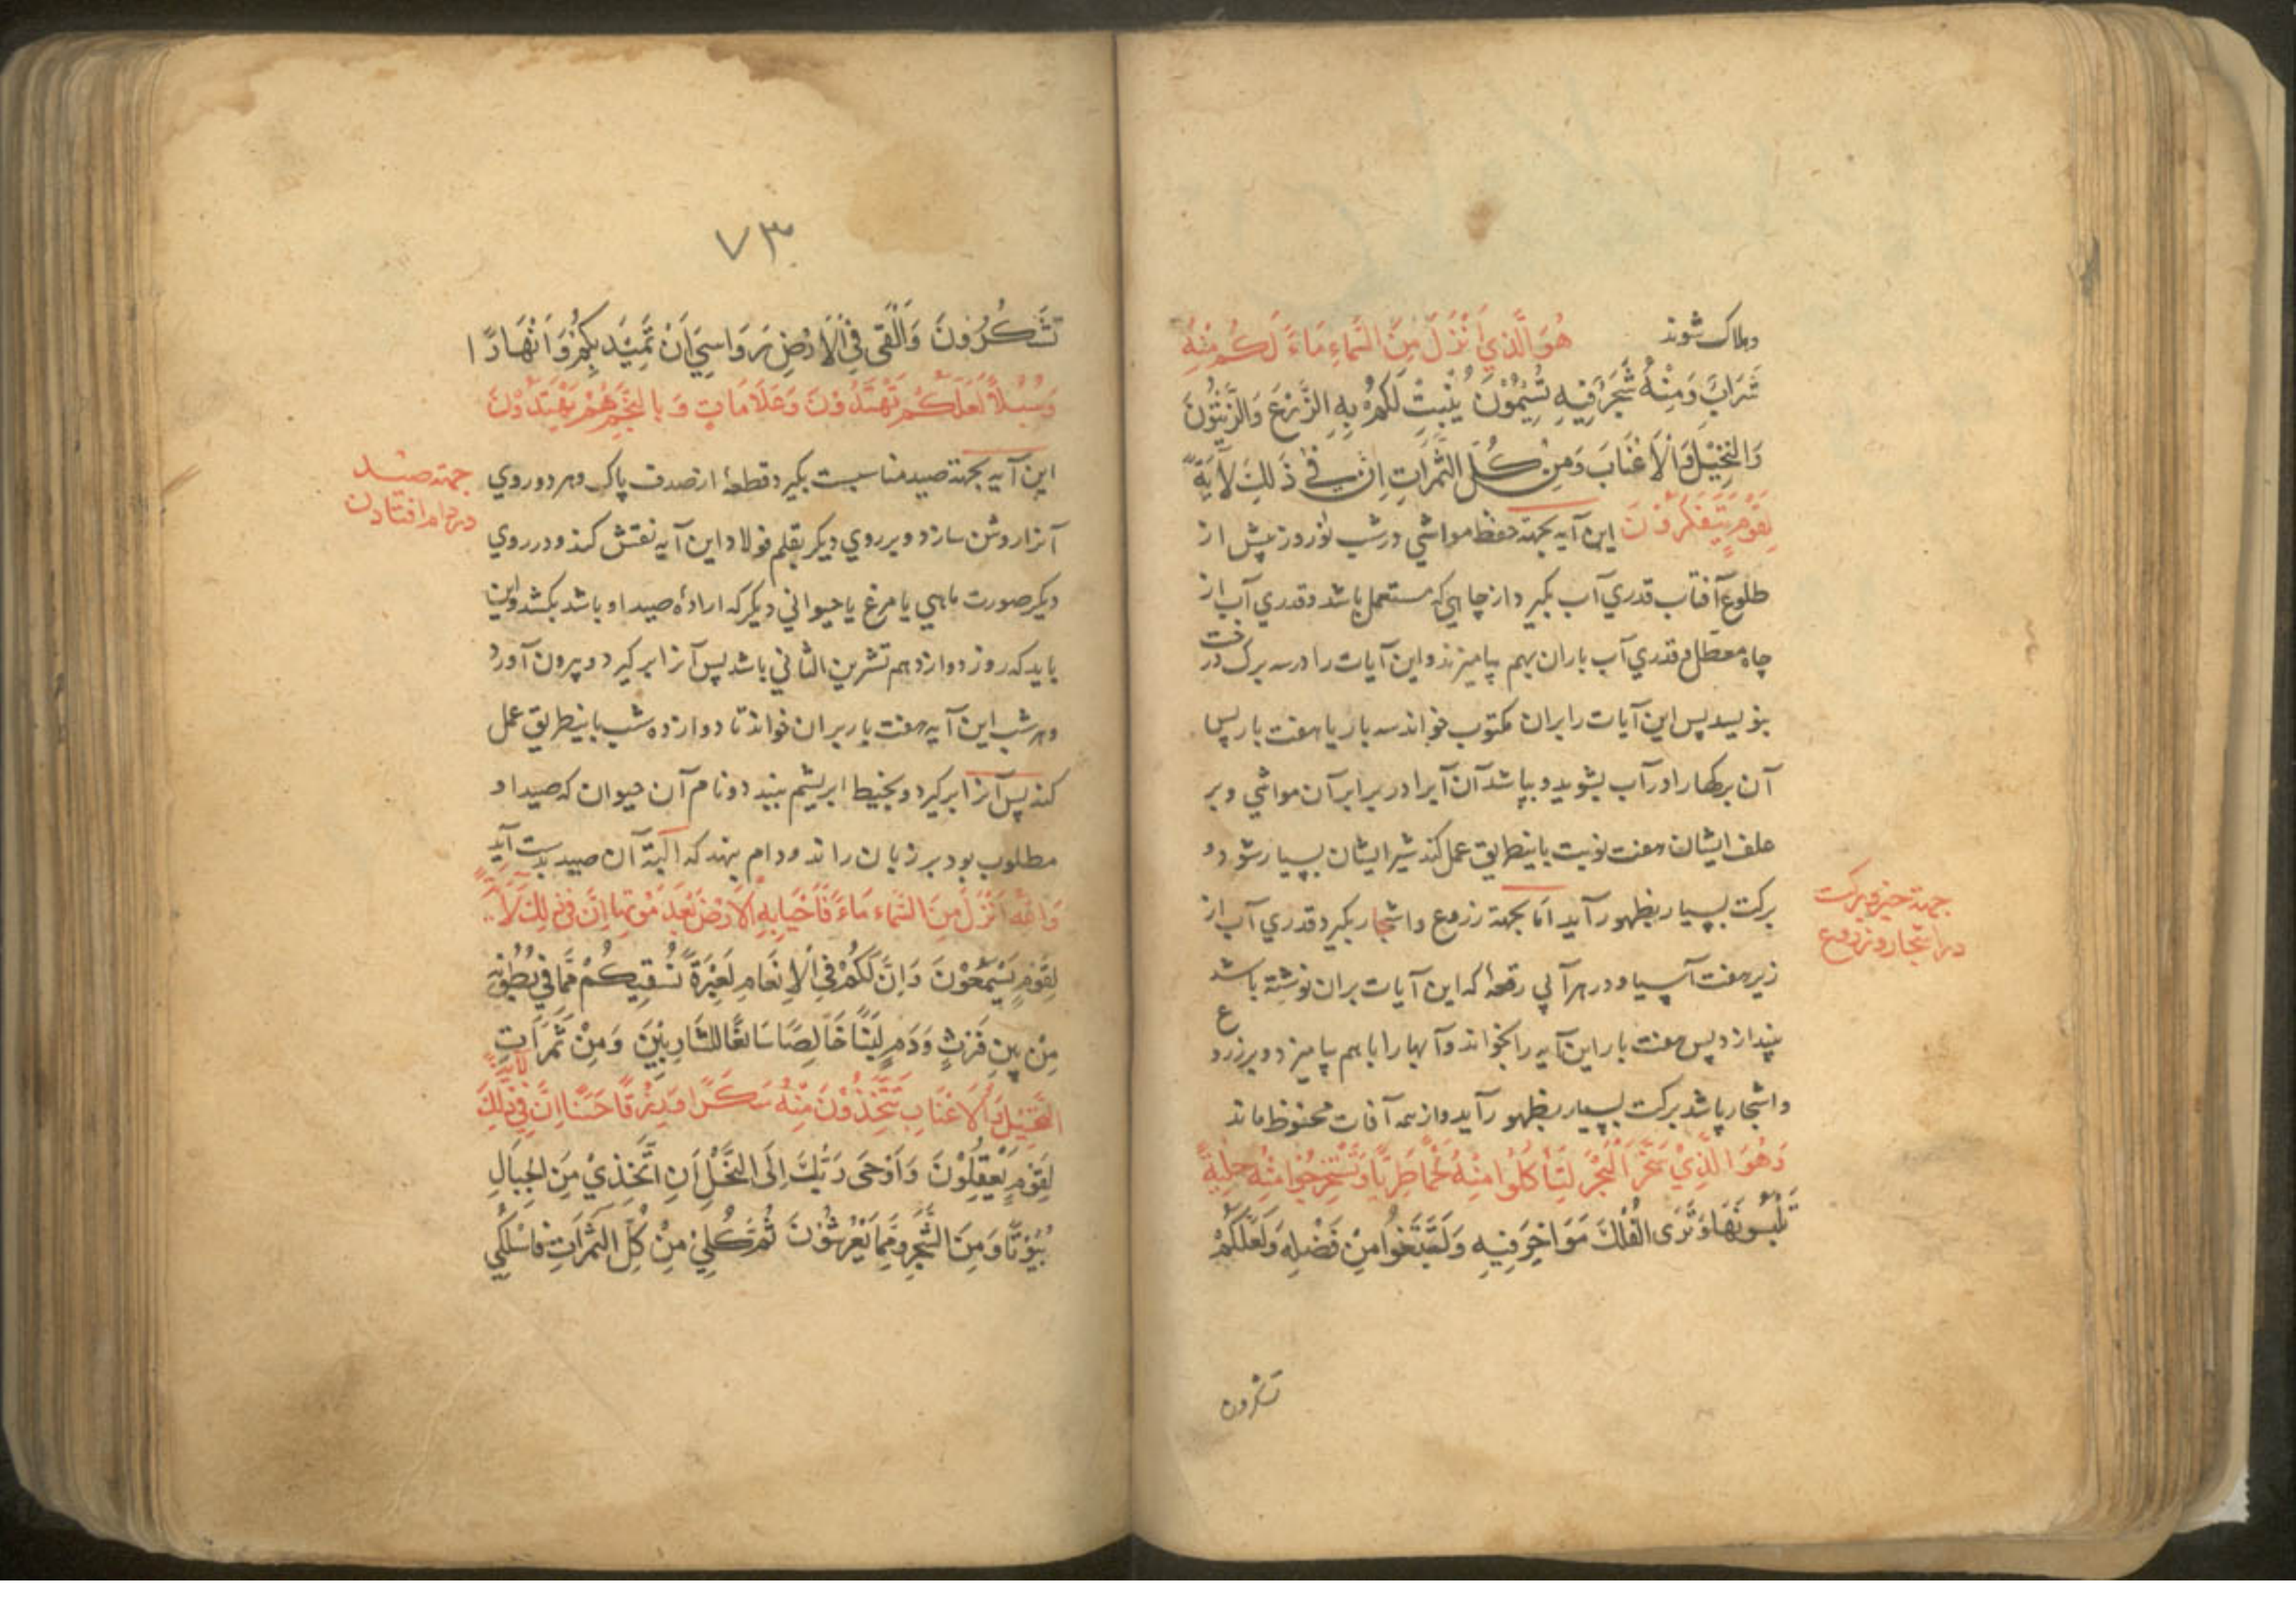 وهلاک شوند هُوَ الَّذِي أَنْزَلَ مِنَ السَّمَاءِ مَاءً لَكُمْ مِنْهُ
شَرَابٌ وَمِنْهُ شَجَرٌ فِيهِ تُسِيمُونَ يُنْبِتُ لَكُمْ بِهِ الزَّرْعَ وَالزَّيْتُونَ
وَالنَّخِيلَ وَالْأَعْنَابَ وَمِنْ كُلِّ الثَّمَرَاتِ إِنَّ فِي ذَلِكَ لَآيَةً
لِقَوْمٍ يَتَفَكَّرُونَ این آیه بجهة حفظ مواشی در شب نوروز پیش از
طلوع آفتاب قدری آب بگیرد از چاهی که مستعمل باشد وقدری آب از
چاه معطل وقدری آب باران بهم بیامیزند واین آیات را در سه برک درخت
بنویسد پس این آیات را بران مکتوب خواند سه بار یا هفت بار پس
آن برکها را در آب بشوید و بپاشد آن آبرا در برابر آن مواشی وبر
علف ایشان هفت نوبت باینطریق عمل کند شیر ایشان بسیار شود و
برکت بسیار بظهور آید اما بجهة زروع واشجار بکیرد قدری آب از
زیر هفت آسیا ودر هر آبی رقعهٔ که این آیات بران نوشته باشد
بیندازد پس هفت بار این آیه را بخواند وآبها را با هم بیامیزد وبر زروع
واشجار پاشد برکت بسیار بظهور آید واز همه آفات محفوظ ماند
وَهُوَ الَّذِي سَخَّرَ الْبَحْرَ لِتَأْكُلُوا مِنْهُ لَحْمًا طَرِيًّا وَتَسْتَخْرِجُوا مِنْهُ حِلْيَةً
تَلْبَسُونَهَا وَتَرَى الْفُلْكَ مَوَاخِرَ فِيهِ وَلِتَبْتَغُوا مِنْ فَضْلِهِ وَلَعَلَّكُمْ
جهة خیر وبرکت
در اشجار وزروع
تشکرون
٧٣
تَشْكُرُونَ وَأَلْقَى فِي الْأَرْضِ رَوَاسِيَ أَنْ تَمِيدَ بِكُمْ وَأَنْهَارًا
وَسُبُلًا لَعَلَّكُمْ تَهْتَدُونَ وَعَلَامَاتٍ وَبِالنَّجْمِ هُمْ يَهْتَدُونَ
این آیه بجهة صید مناسبست بکیرد قطعهٔ از صدف پاک وهر دو روی
آنرا روشن سازد وبر روی دیکر بقلم فولاد این آیه نقش کند ودر روی
دیکر صورت ماهی یا مرغ یا حیوانی دیکر که ارادهٔ صید او باشد بکشد واین
باید که روز دوازدهم تشرین الثانی باشد پس آنرا بر کیرد وبیرون آورد
وهر شب این آیه هفت بار بران خواند تا دوازده شب باینطریق عمل
کند پس آنرا بر کیرد وبخیط ابریشم ببندد ونام آن حیوان که صید او
مطلوب بود بر زبان راند ودام بنهد که البتة آن صید بدست آید
وَاللَّهُ أَنْزَلَ مِنَ السَّمَاءِ مَاءً فَأَحْيَا بِهِ الْأَرْضَ بَعْدَ مَوْتِهَا إِنَّ فِي ذَلِكَ لَآيَةً
لِقَوْمٍ يَسْمَعُونَ وَإِنَّ لَكُمْ فِي الْأَنْعَامِ لَعِبْرَةً نُسْقِيكُمْ مِمَّا فِي بُطُونِهِ
مِنْ بَيْنِ فَرْثٍ وَدَمٍ لَبَنًا خَالِصًا سَائِغًا لِلشَّارِبِينَ وَمِنْ ثَمَرَاتِ
النَّخِيلِ وَالْأَعْنَابِ تَتَّخِذُونَ مِنْهُ سَكَرًا وَرِزْقًا حَسَنًا إِنَّ فِي ذَلِكَ لَآيَةً
لِقَوْمٍ يَعْقِلُونَ وَأَوْحَى رَبُّكَ إِلَى النَّحْلِ أَنِ اتَّخِذِي مِنَ الْجِبَالِ
بُيُوتًا وَمِنَ الشَّجَرِ وَمِمَّا يَعْرِشُونَ ثُمَّ كُلِي مِنْ كُلِّ الثَّمَرَاتِ فَاسْلُكِي
جهة صید
در دام افتادن